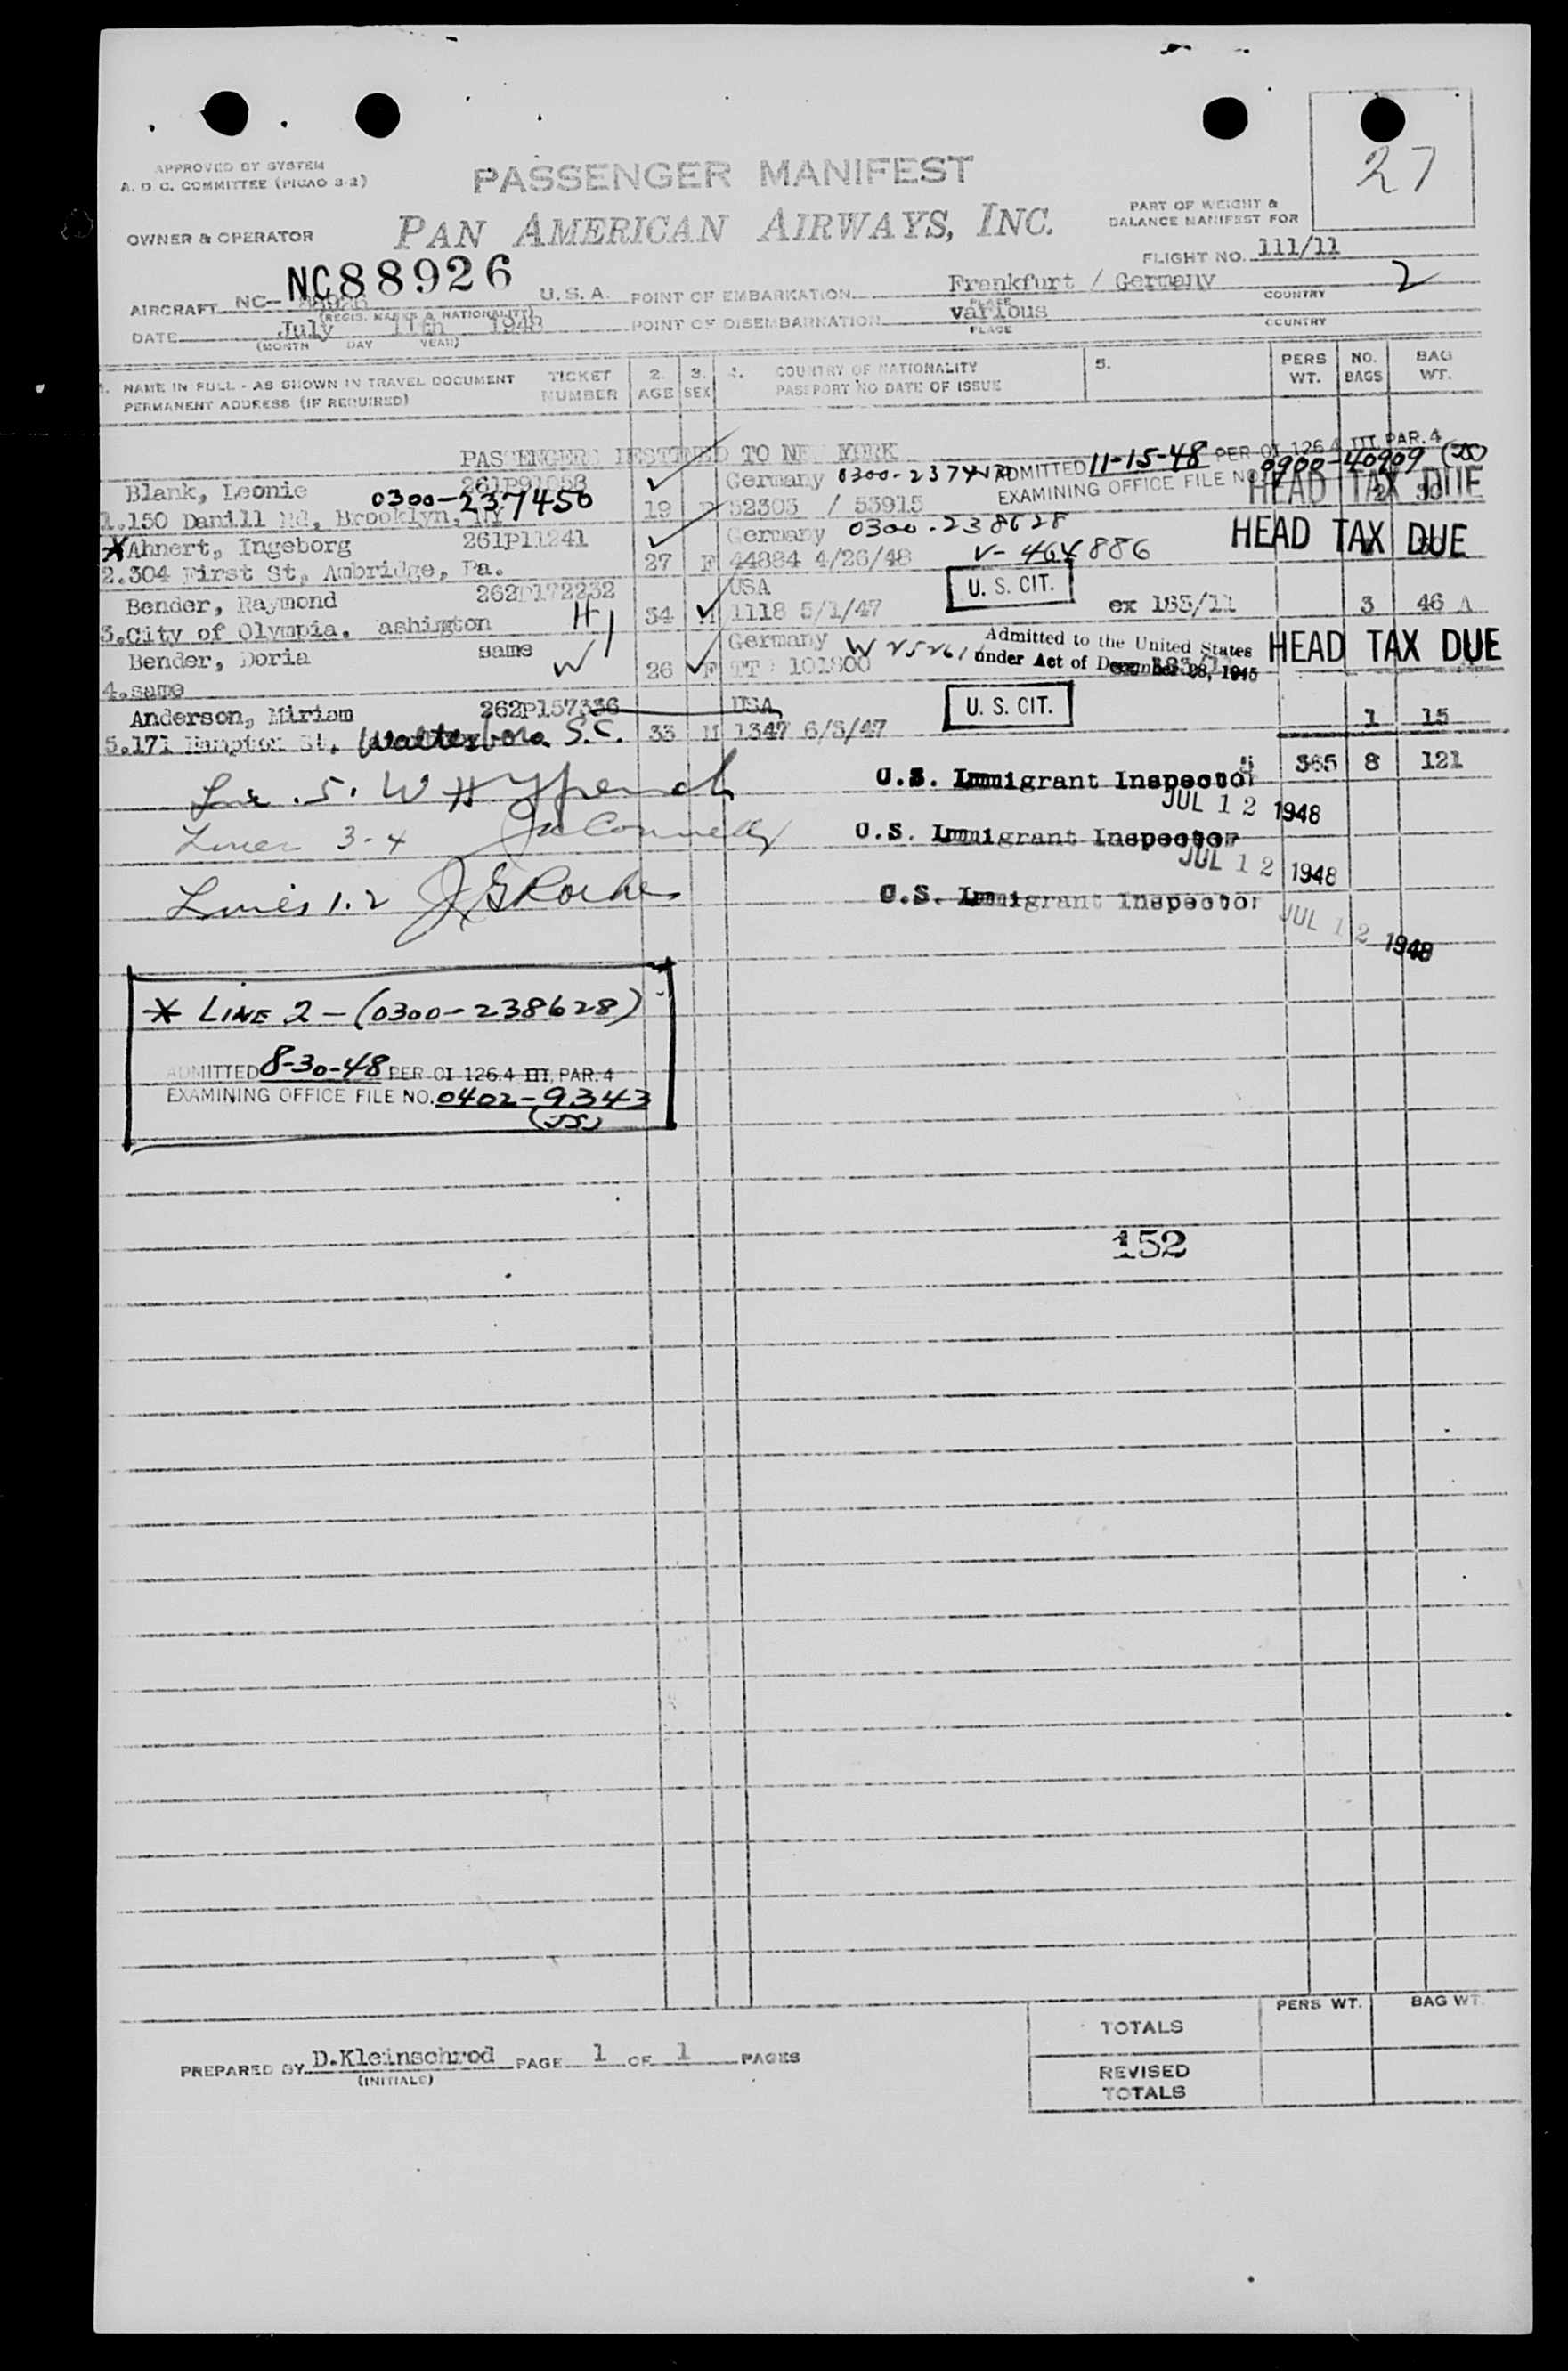 27
APPROVED BY SYSTEM
A. D. C. COMMITTEE (PICAO 3-2)
PASSENGER MANIFEST
PART OF WEIGHT &
BALANCE MANIFEST FOR
OWNER & OPERATOR
PAN AMERICAN AIRWAYS, INC.
FLIGHT NO. 111/11
NC88926
AIRCRAFT NC- 88926 U. S. A. POINT OF EMBARKATION Frankfurt / Germany 2
(REGIS. MARKS & NATIONALITY) PLACE COUNTRY
DATE July 11th 1948 POINT OF DISEMBARKATION various
(MONTH DAY YEAR) PLACE COUNTRY
1. NAME IN FULL - AS SHOWN IN TRAVEL DOCUMENT TICKET 2. 3. 4. COUNTRY OF NATIONALITY 5. PERS NO. BAG
PERMANENT ADDRESS (IF REQUIRED) NUMBER AGE SEX PASSPORT NO DATE OF ISSUE WT. BAGS WT.
PASSENGERS DESTINED TO NEW YORK
ADMITTED 11-15-48 PER OI 126.4 III, PAR. 4
EXAMINING OFFICE FILE NO. 0900-40909 (JS)
Blank, Leonie 261P91058 Germany
0300-237450
1. 150 Danill Rd, Brooklyn, NY 19 F 52303 / 53915 HEAD TAX DUE
Ahnert, Ingeborg 261P11241 Germany 0300-238628
2. 304 First St, Ambridge, Pa. 27 F 44884 4/26/48 V-464886 HEAD TAX DUE
Bender, Raymond 262P172232 USA U. S. CIT.
3. City of Olympia, ashington H 34 M 1118 5/1/47 ex 183/11 3 46 A
Bender, Doria same Germany Admitted to the United States
under Act of December 28, 1945 HEAD TAX DUE
4. same W 26 F TT 101800
Anderson, Miriam 262P157336 USA U. S. CIT.
5. 171 Hampton St. Walterboro S.C. 33 M 1347 6/3/47 1 15
5 365 8 121
Line . 5. W H
U.S. Immigrant Inspector
JUL 12 1948
Lines 3-4
U.S. Immigrant Inspector
JUL 12 1948
Lines 1.2
U.S. Immigrant Inspector
JUL 12 1948
* LINE 2 - (0300-238628)
ADMITTED 8-30-48 PER OI 126.4 III, PAR. 4
EXAMINING OFFICE FILE NO. 0402-9343
(JS)
152
PERS WT. BAG WT.
TOTALS
PREPARED BY D.Kleinschrod PAGE 1 OF 1 PAGES
(INITIALS)
REVISED
TOTALS